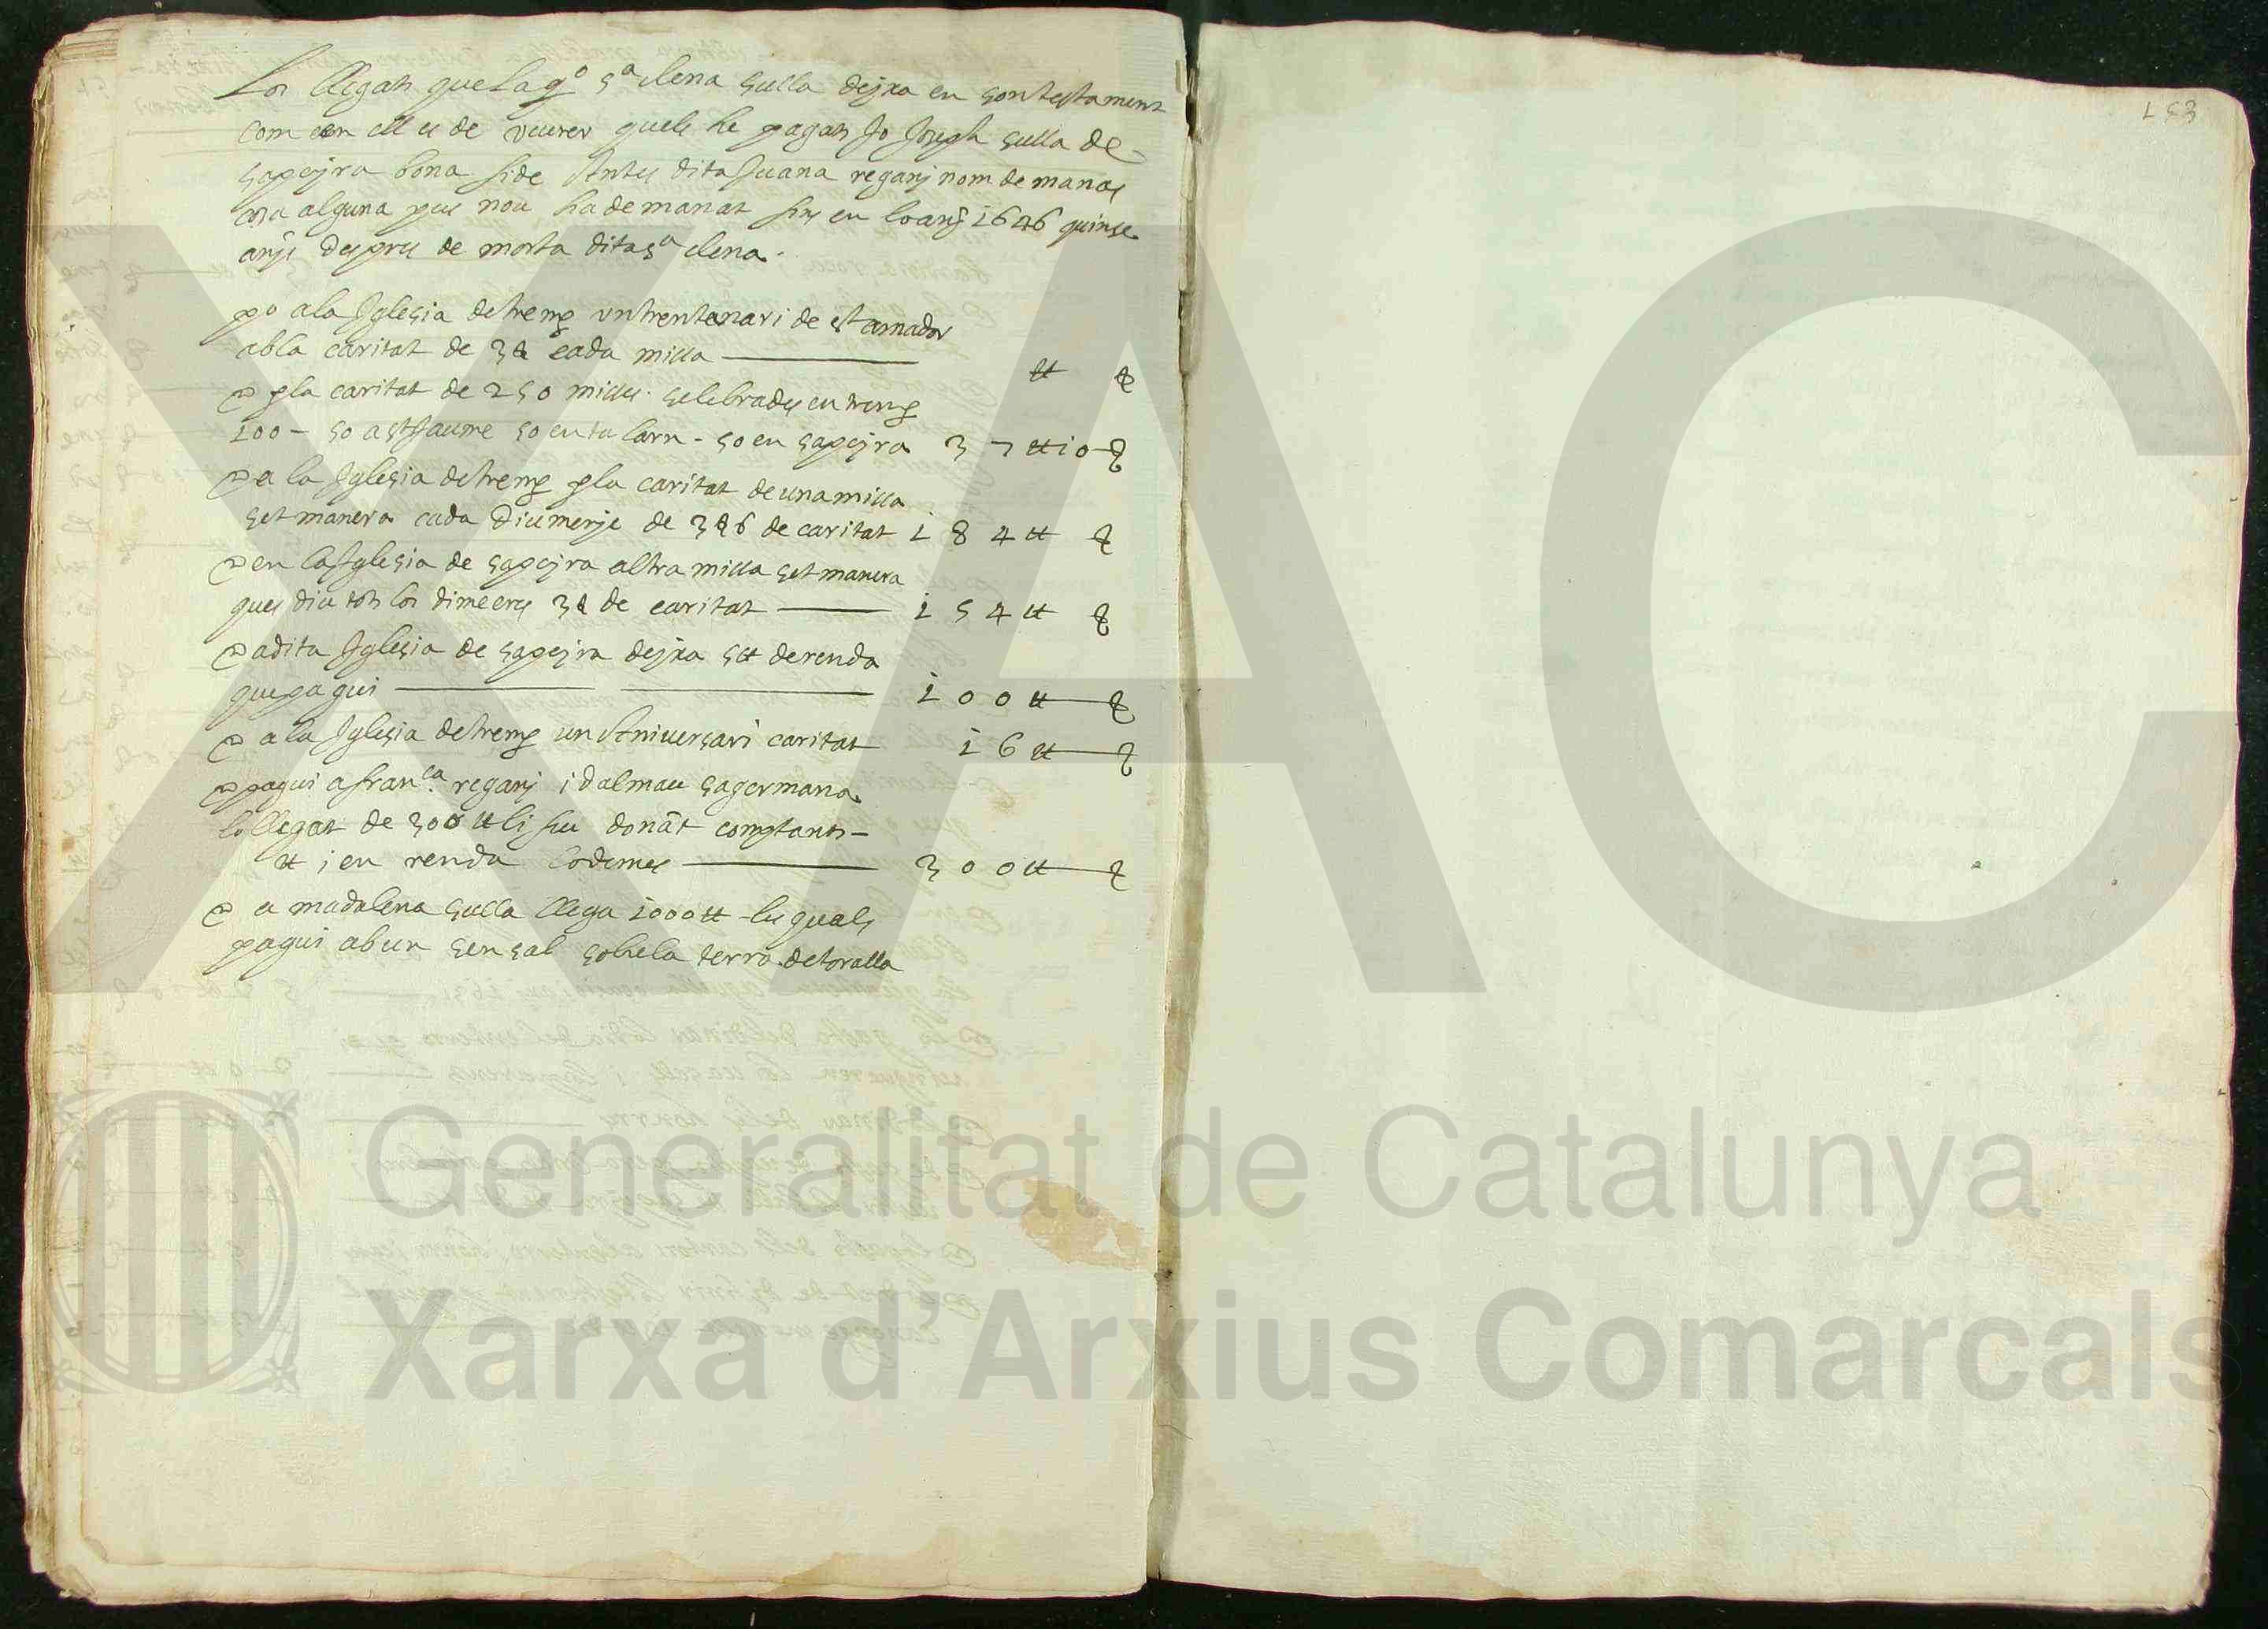 Los llegats que la qº sª elena sulla dejxa en son testament
com en ell es de veurer quels he pagats Jo Joseph sulla de
sapejra bona fide Antes dita Juana reganj nom demanas
cosa alguna pus nou ha demanat fins en lo anj 1646 quinse
anjs despres de morta dita sª elena.
pº a la Iglesia de tremp un trentenari de st amador
ab la caritat de 3 s cada missa
pla caritat de 250 misses selebrades en tremp
100 - 50 a st Jaume 50 en talarn - 50 en sapejra 37 ll 10 s
a la Iglesia de tremp pla caritat de una missa
setmanera cada diumenje de 3 s 6 de caritat 184 ll s
en la Iglesia de sapejra altra missa setmanera
ques diu tots los dimecres 3 s de caritat 154 ll s
a dita Iglesia de sapejra dejxa 5 ll de renda
que pagui 100 ll s
a la Iglesia de tremp un Aniversari caritat 16 ll s
pagui a franca. reganj i dalmau sa germana
lo llegat de 300 ll li fiu donāt comptants -
ll i en renda lo demes 300 ll s
a madalena sulla llega 1000 ll - les quals
pagui ab un sensal sobre la terra de toralla
153
XAC
Generalitat de Catalunya
Xarxa d'Arxius Comarcals